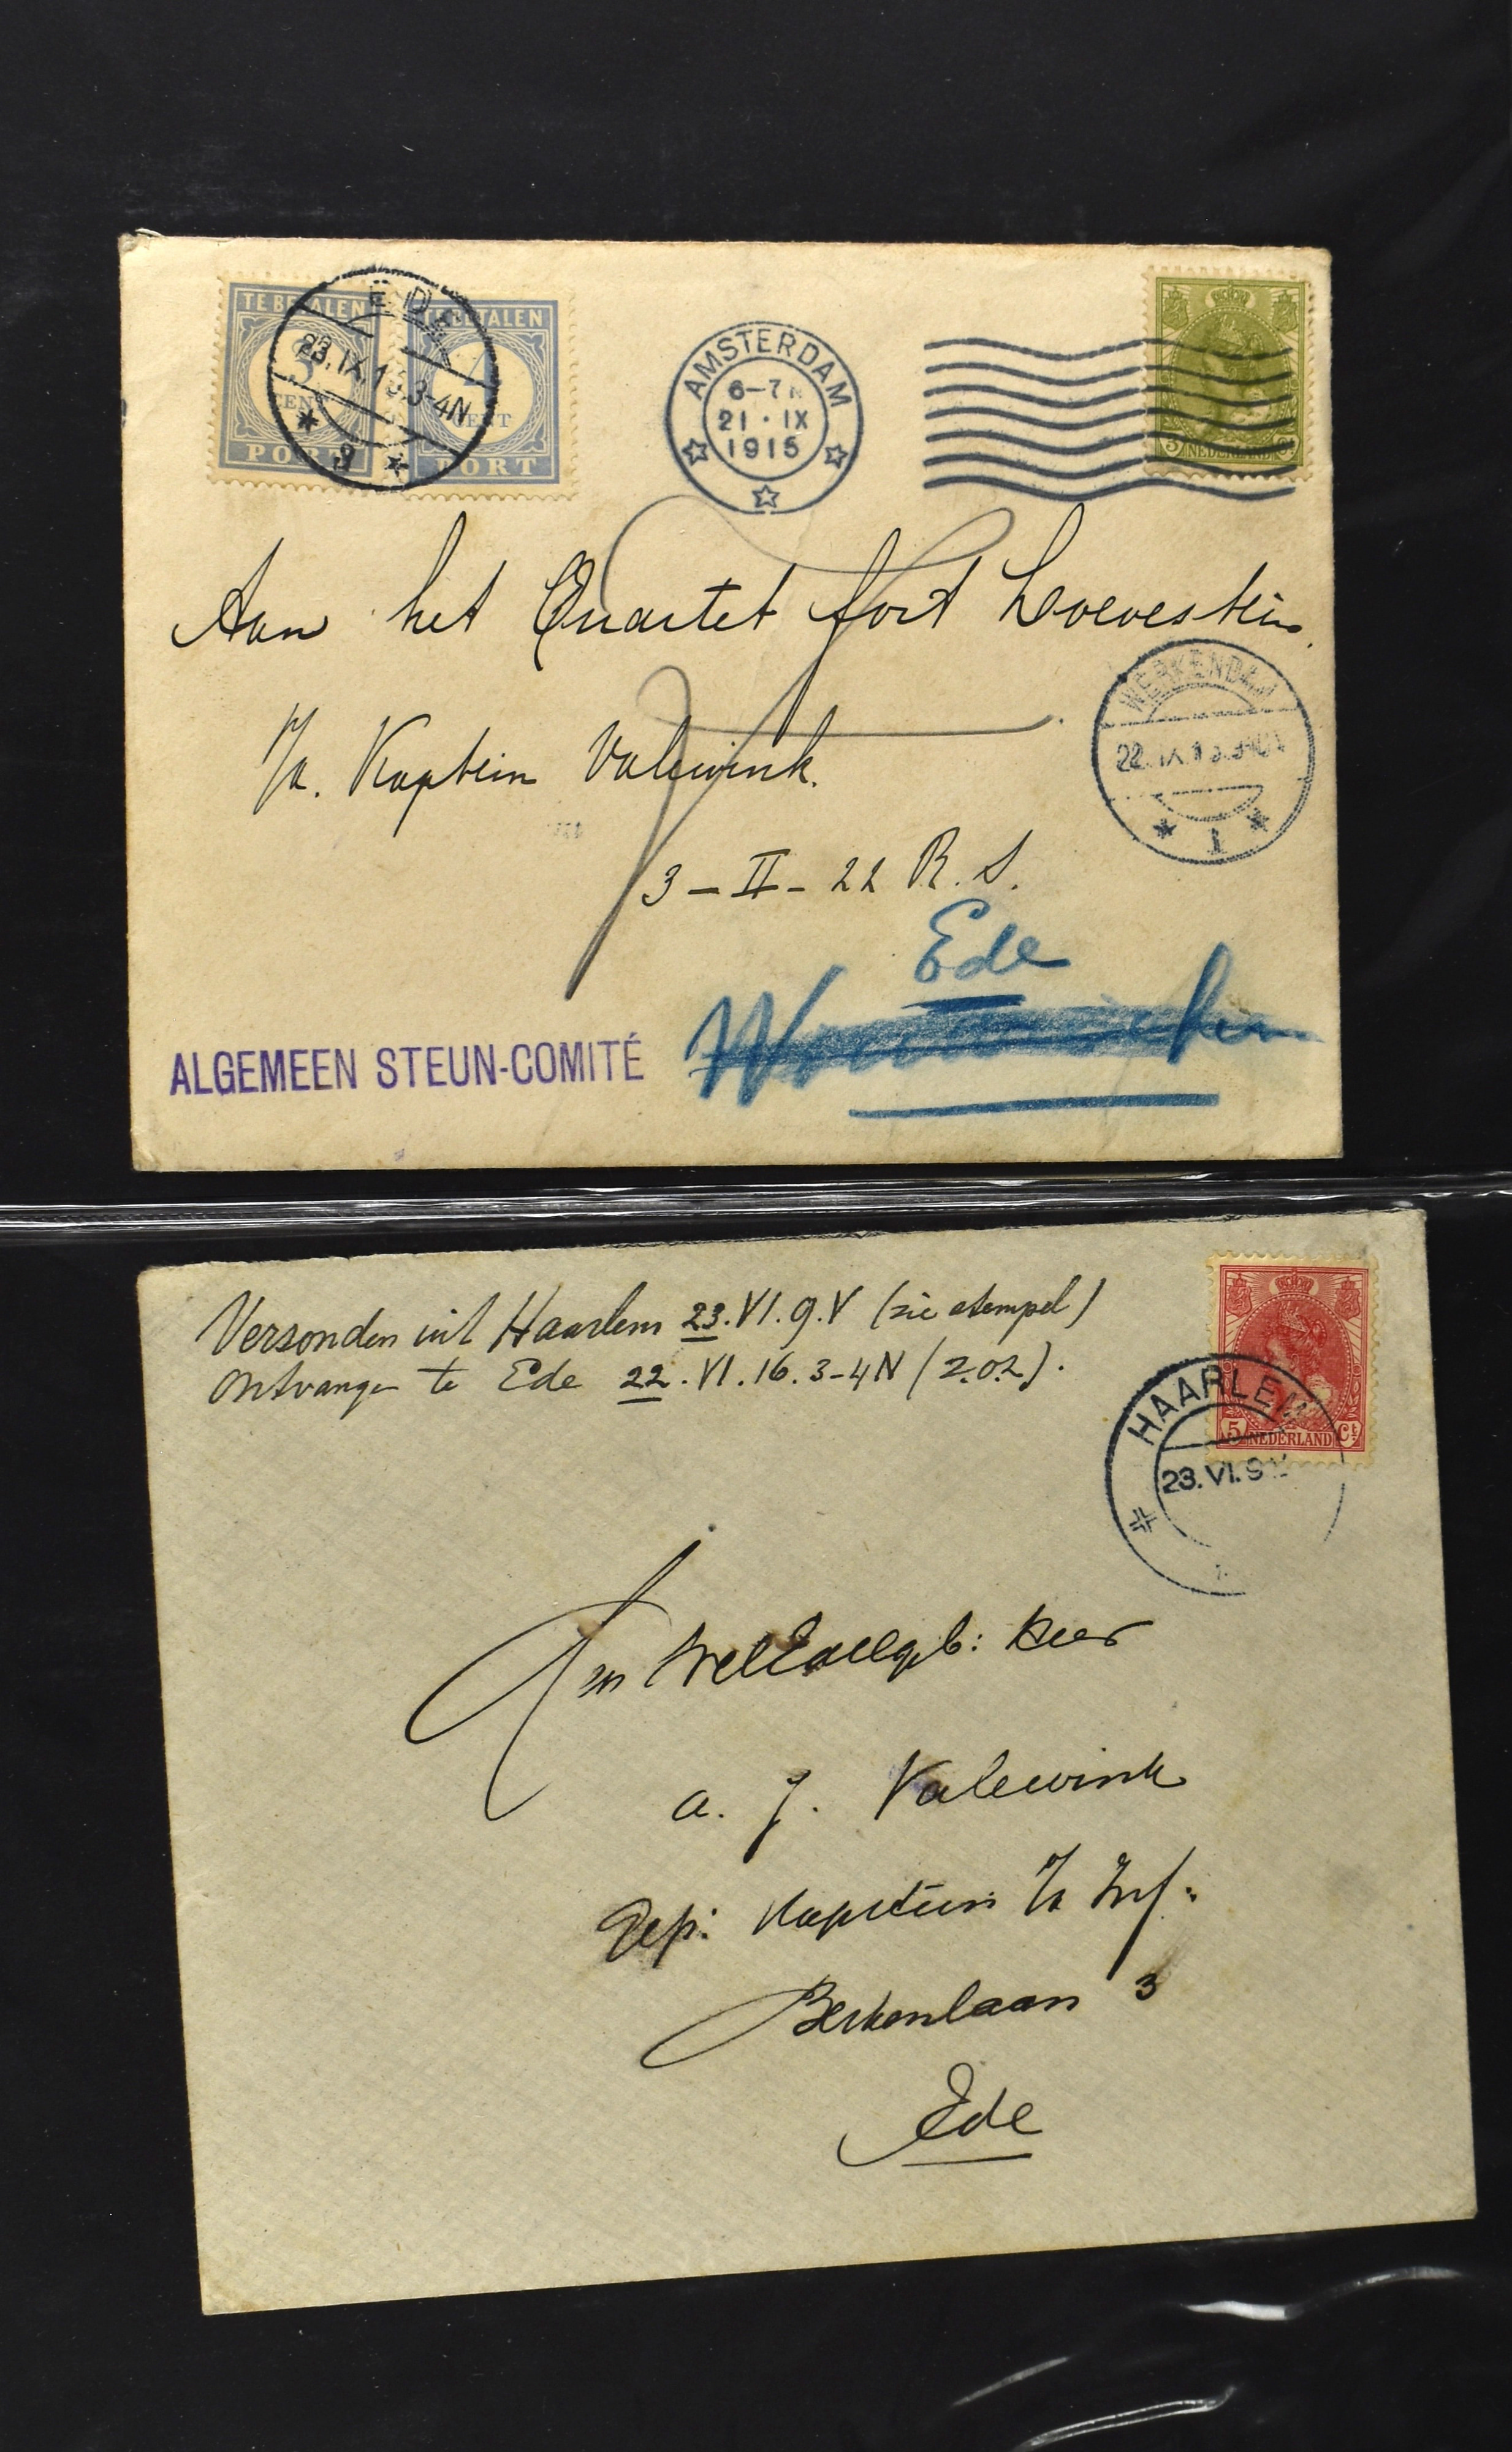 TE BETALEN
TE BETALEN
CENT
CENT
PORT
PORT
EDE
23.IX.15 3-4N
AMSTERDAM
6-7N
21 · IX
1915
3 NEDERLAND Ct
Aan het Quartet fort Loevestein.
p/a. Kaptein Valewink.
3 – II – 22 R. I.
WERKENDAM
22.IX.15
1
Ede
ALGEMEEN STEUN-COMITÉ
Versonden uit Haarlem 23.VI.9.V (zie stempel)
Ontvangen te Ede 22.VI.16.3-4N (z.o.z.).
5 NEDERLAND Ct
HAARLEM
23.VI.9V
Den WelEdelgeb: Heer
A. J. Valewink
Kapitein
Inf:
Berkenlaan 3
Ede